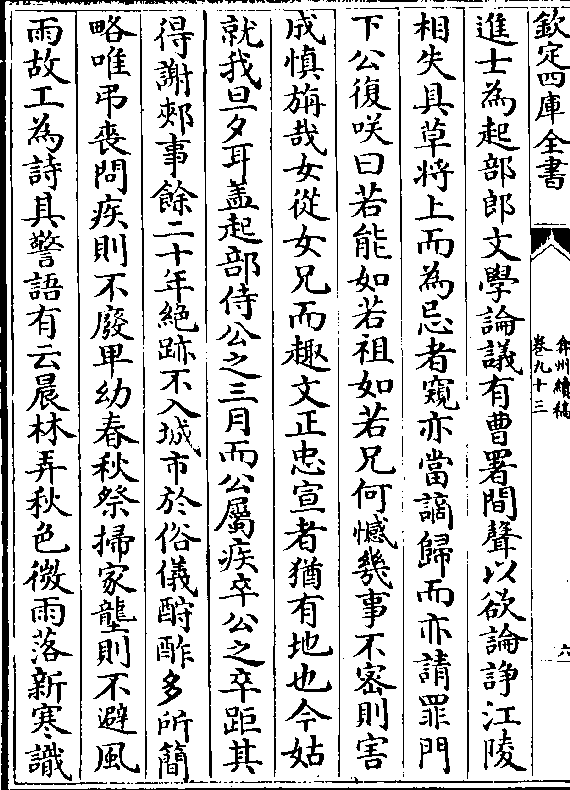 欽定四庫全書
弇州續稿
卷九十三
六
進士為起部郎文學論議有曹署間聲以欲論諍江陵
相失具草將上而為忌者窺亦當謫歸而亦請罪門
下公復咲曰若能如若祖如若兄何憾幾事不密則害
成慎旃哉女從女兄而趣文正忠宣者猶有地也今姑
就我旦夕耳盖起部侍公之三月而公屬疾卒公之卒距其
得謝郟事餘二十年絶跡不入城市於俗儀酧酢多所簡
略唯弔喪問疾則不廢卑幼春秋祭掃家壟則不避風
雨故工為詩其警語有云晨林弄秋色微雨落新寒識